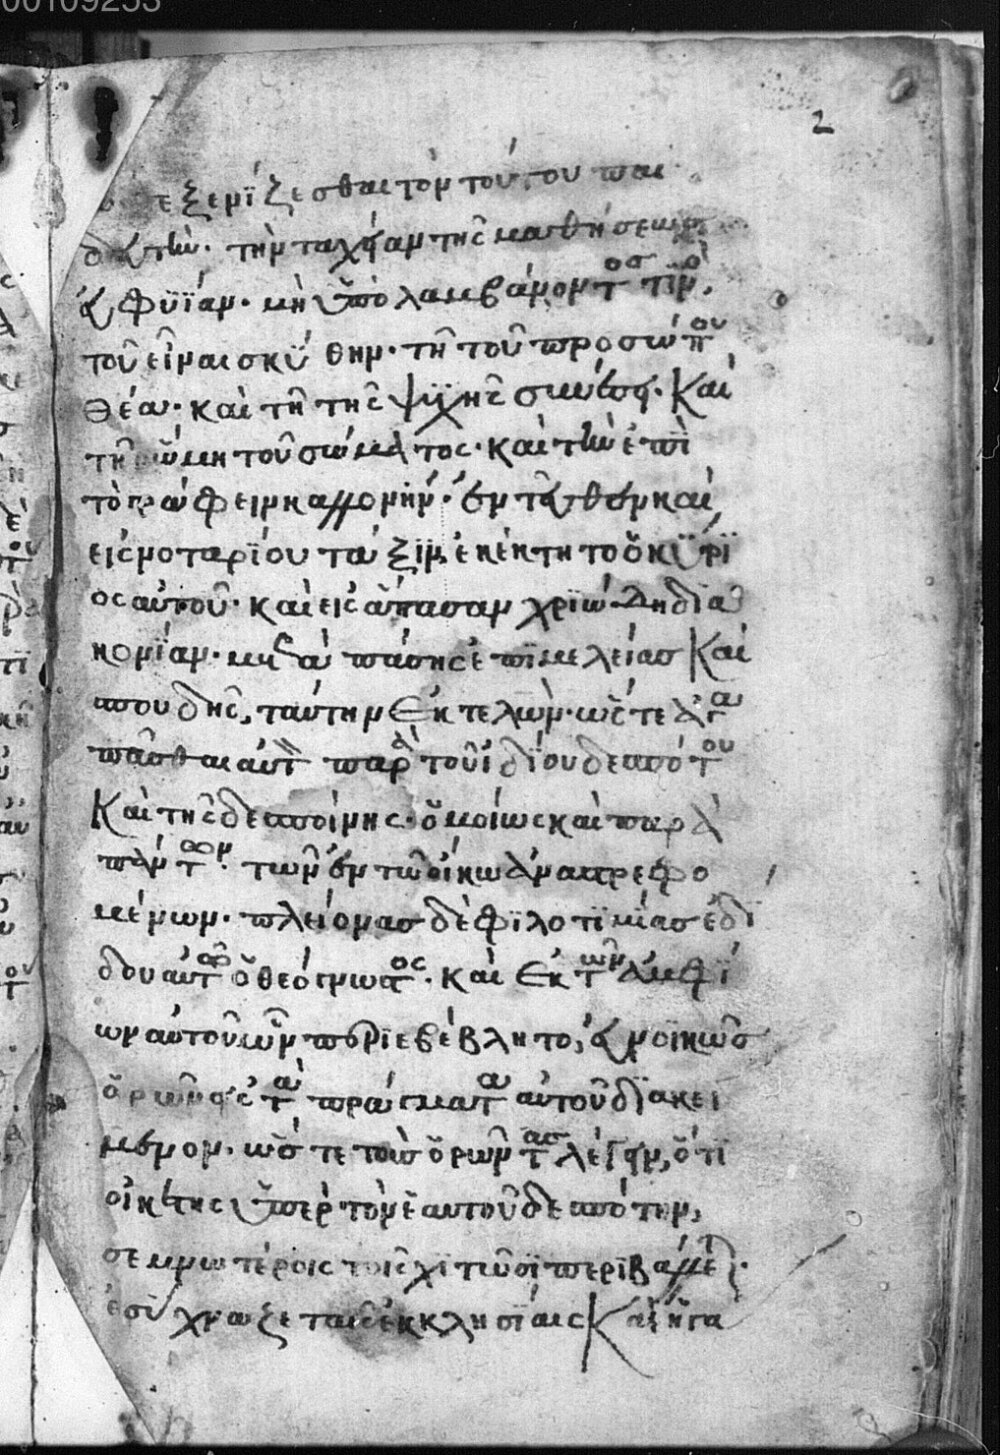 00109253
2
τε ξενϊζεσθαι τὸν τούτου παι
δευτὴν· τὴν ταχεῖαν τῆς μαθήσεως
εὐφϋΐαν· μὴ ὑπολαμβάνοντος τινὰ,
τοῦ εἶναι σκύθην· τῇ τοῦ προσώπου
θέα· καὶ τῇ τῆς ψϋχῆς συνέσει· Καὶ
τῇ ῥώμη τοῦ σώματος· καὶ τὴν ἐπὶ
τὸ γράφειν καλλονήν· ἐντεῦθεν καὶ
εἰς νοταρίου τάξϊν, ἐκέκτητο ὁ κύρϊ
ος αὐτοῦ· καὶ εἰς ἅπασαν χρϊῶν δὴ δϊα
κονίαν· μετὰ πάσης ἐπϊμελείας Καὶ
σπουδῆς, ταύτην ἐκτελῶν· ὥστε ἀγα
πᾶσθαι αὐτὸν παρὰ τοῦ ἰδίου δεσπότου
Καὶ τῆς δεσποίνης· ὁμοίως καὶ παρὰ
πάντων· τῶν ἐν τῶ οἴκω ἀναστρεφο
μένων· πλείονας δὲ φϊλοτϊμίας ἐδί
δου αὐτῶ ὁ θεόγνωστος· καὶ ἐκ τῶν ἀμφί
ων αὐτοῦ ὧν περϊεβέβλητο, εὐνοϊκῶς
ὁρῶν εἰς τὰ πράγματα αὐτοῦ δϊακεί
μενον· ὥστε τοὺς ὁρῶντας λέγειν, ὅτι
οἰκέτης ὑπὲρ τὸν ἑαυτοῦ δεσπότην,
σεμνωτέροις τοῖς χϊτῶσϊ περϊβάλλεται·
ἐσύχναζε ταῖς ἐκκλησΐαις Καὶ ἠγα